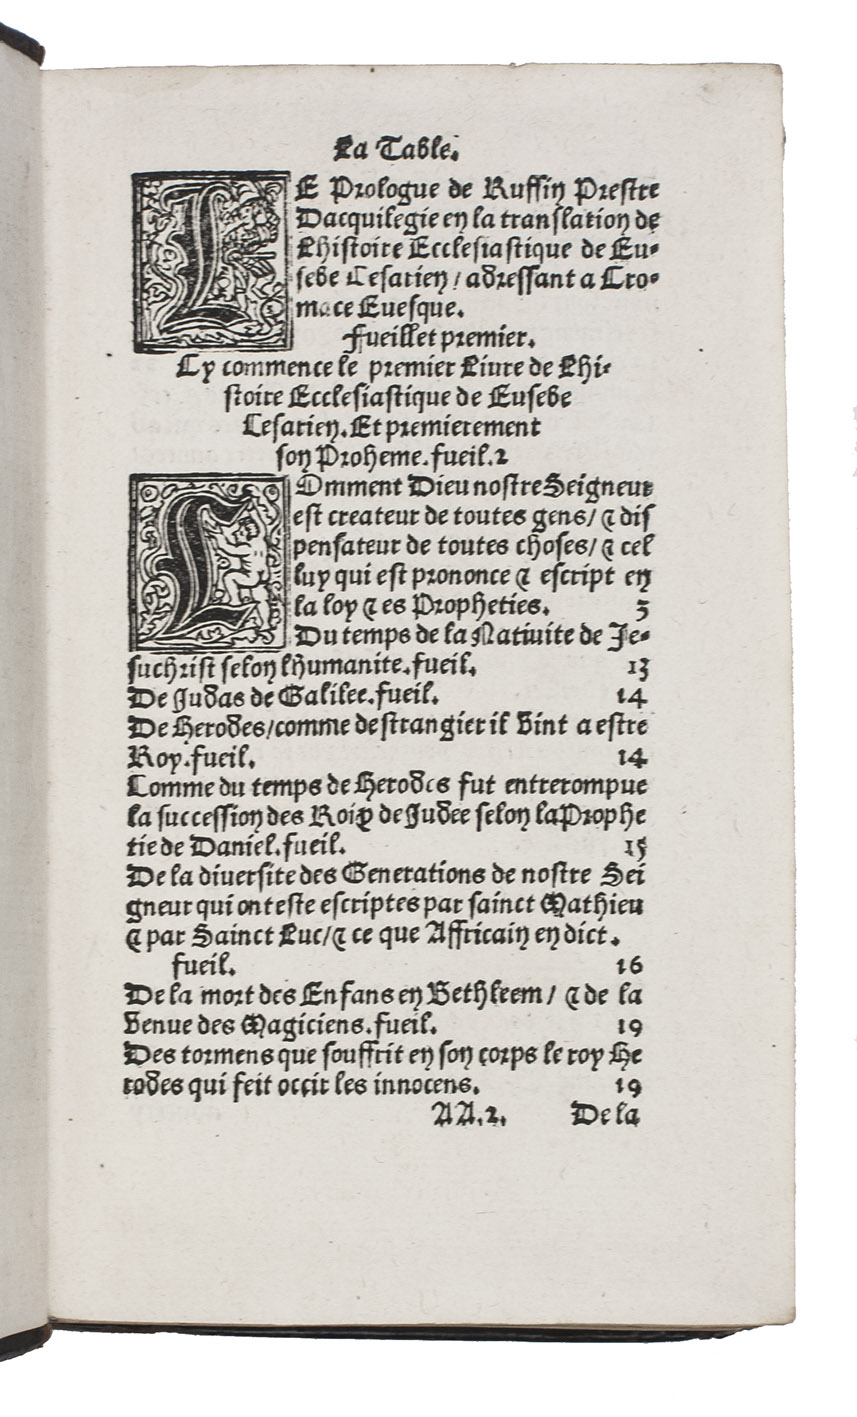 La Table.
LE Prologue de Ruffin Prestre
Dacquilegie en la translation de
Lhistoire Ecclesiastique de Eu-
sebe Cesarien / adressant a Cro-
mace Euesque.
Fueillet premier.
Cy commence le premier Liure de Lhi-
stoire Ecclesiastique de Eusebe
Cesarien. Et premierement
son Proheme. fueil. 2
COmment Dieu nostre Seigneur
est createur de toutes gens / & dis
pensateur de toutes choses / & cel
luy qui est prononce & escript en
la loy & es Propheties. 5
Du temps de la Natiuite de Je-
suchrist selon lhumanite. fueil. 13
De Judas de Galilee. fueil. 14
De Herodes / comme destrangier il vint a estre
Roy. fueil. 14
Comme du temps de Herodes fut entrerompue
la succession des Roix de Judee selon la Prophe
tie de Daniel. fueil. 15
De la diuersite des Generations de nostre Sei
gneur qui ont este escriptes par sainct Mathieu
& par Sainct Luc / & ce que Affricain en dict.
fueil. 16
De la mort des Enfans en Bethleem / & de la
venue des Magiciens. fueil. 19
Des tormens que souffrit en son corps le roy He
rodes qui feit occir les innocens. 19
AA.2. De la